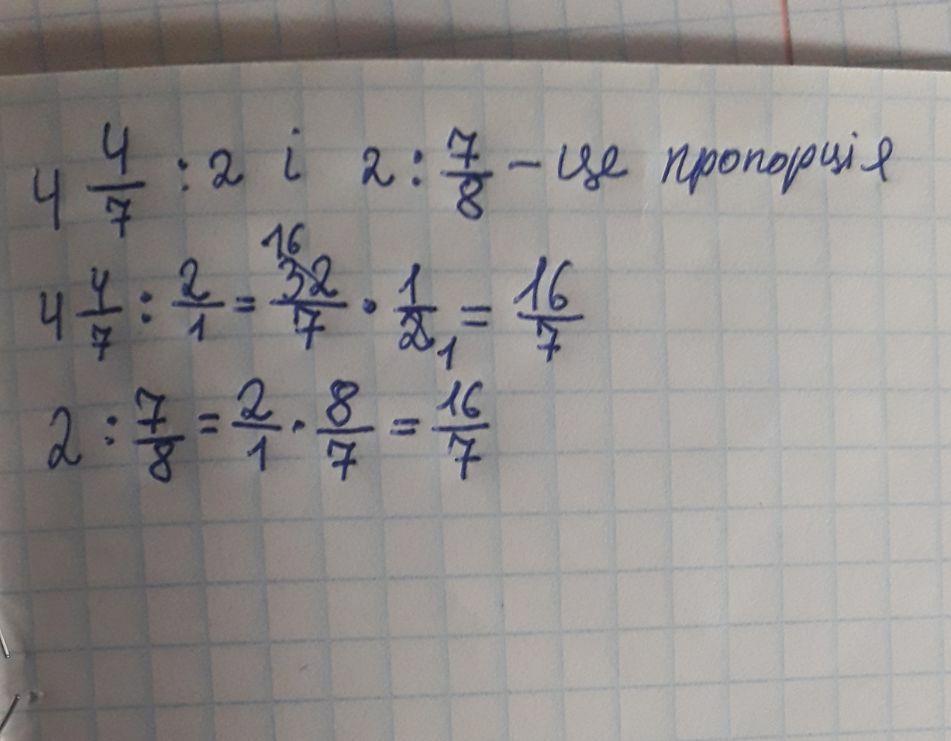 4 4/7 : 2 і 2 : 7/8 – це пропорція
4 4/7 : 2/1 = 16 32/7 · 1/2 1 = 16/7
2 : 7/8 = 2/1 · 8/7 = 16/7